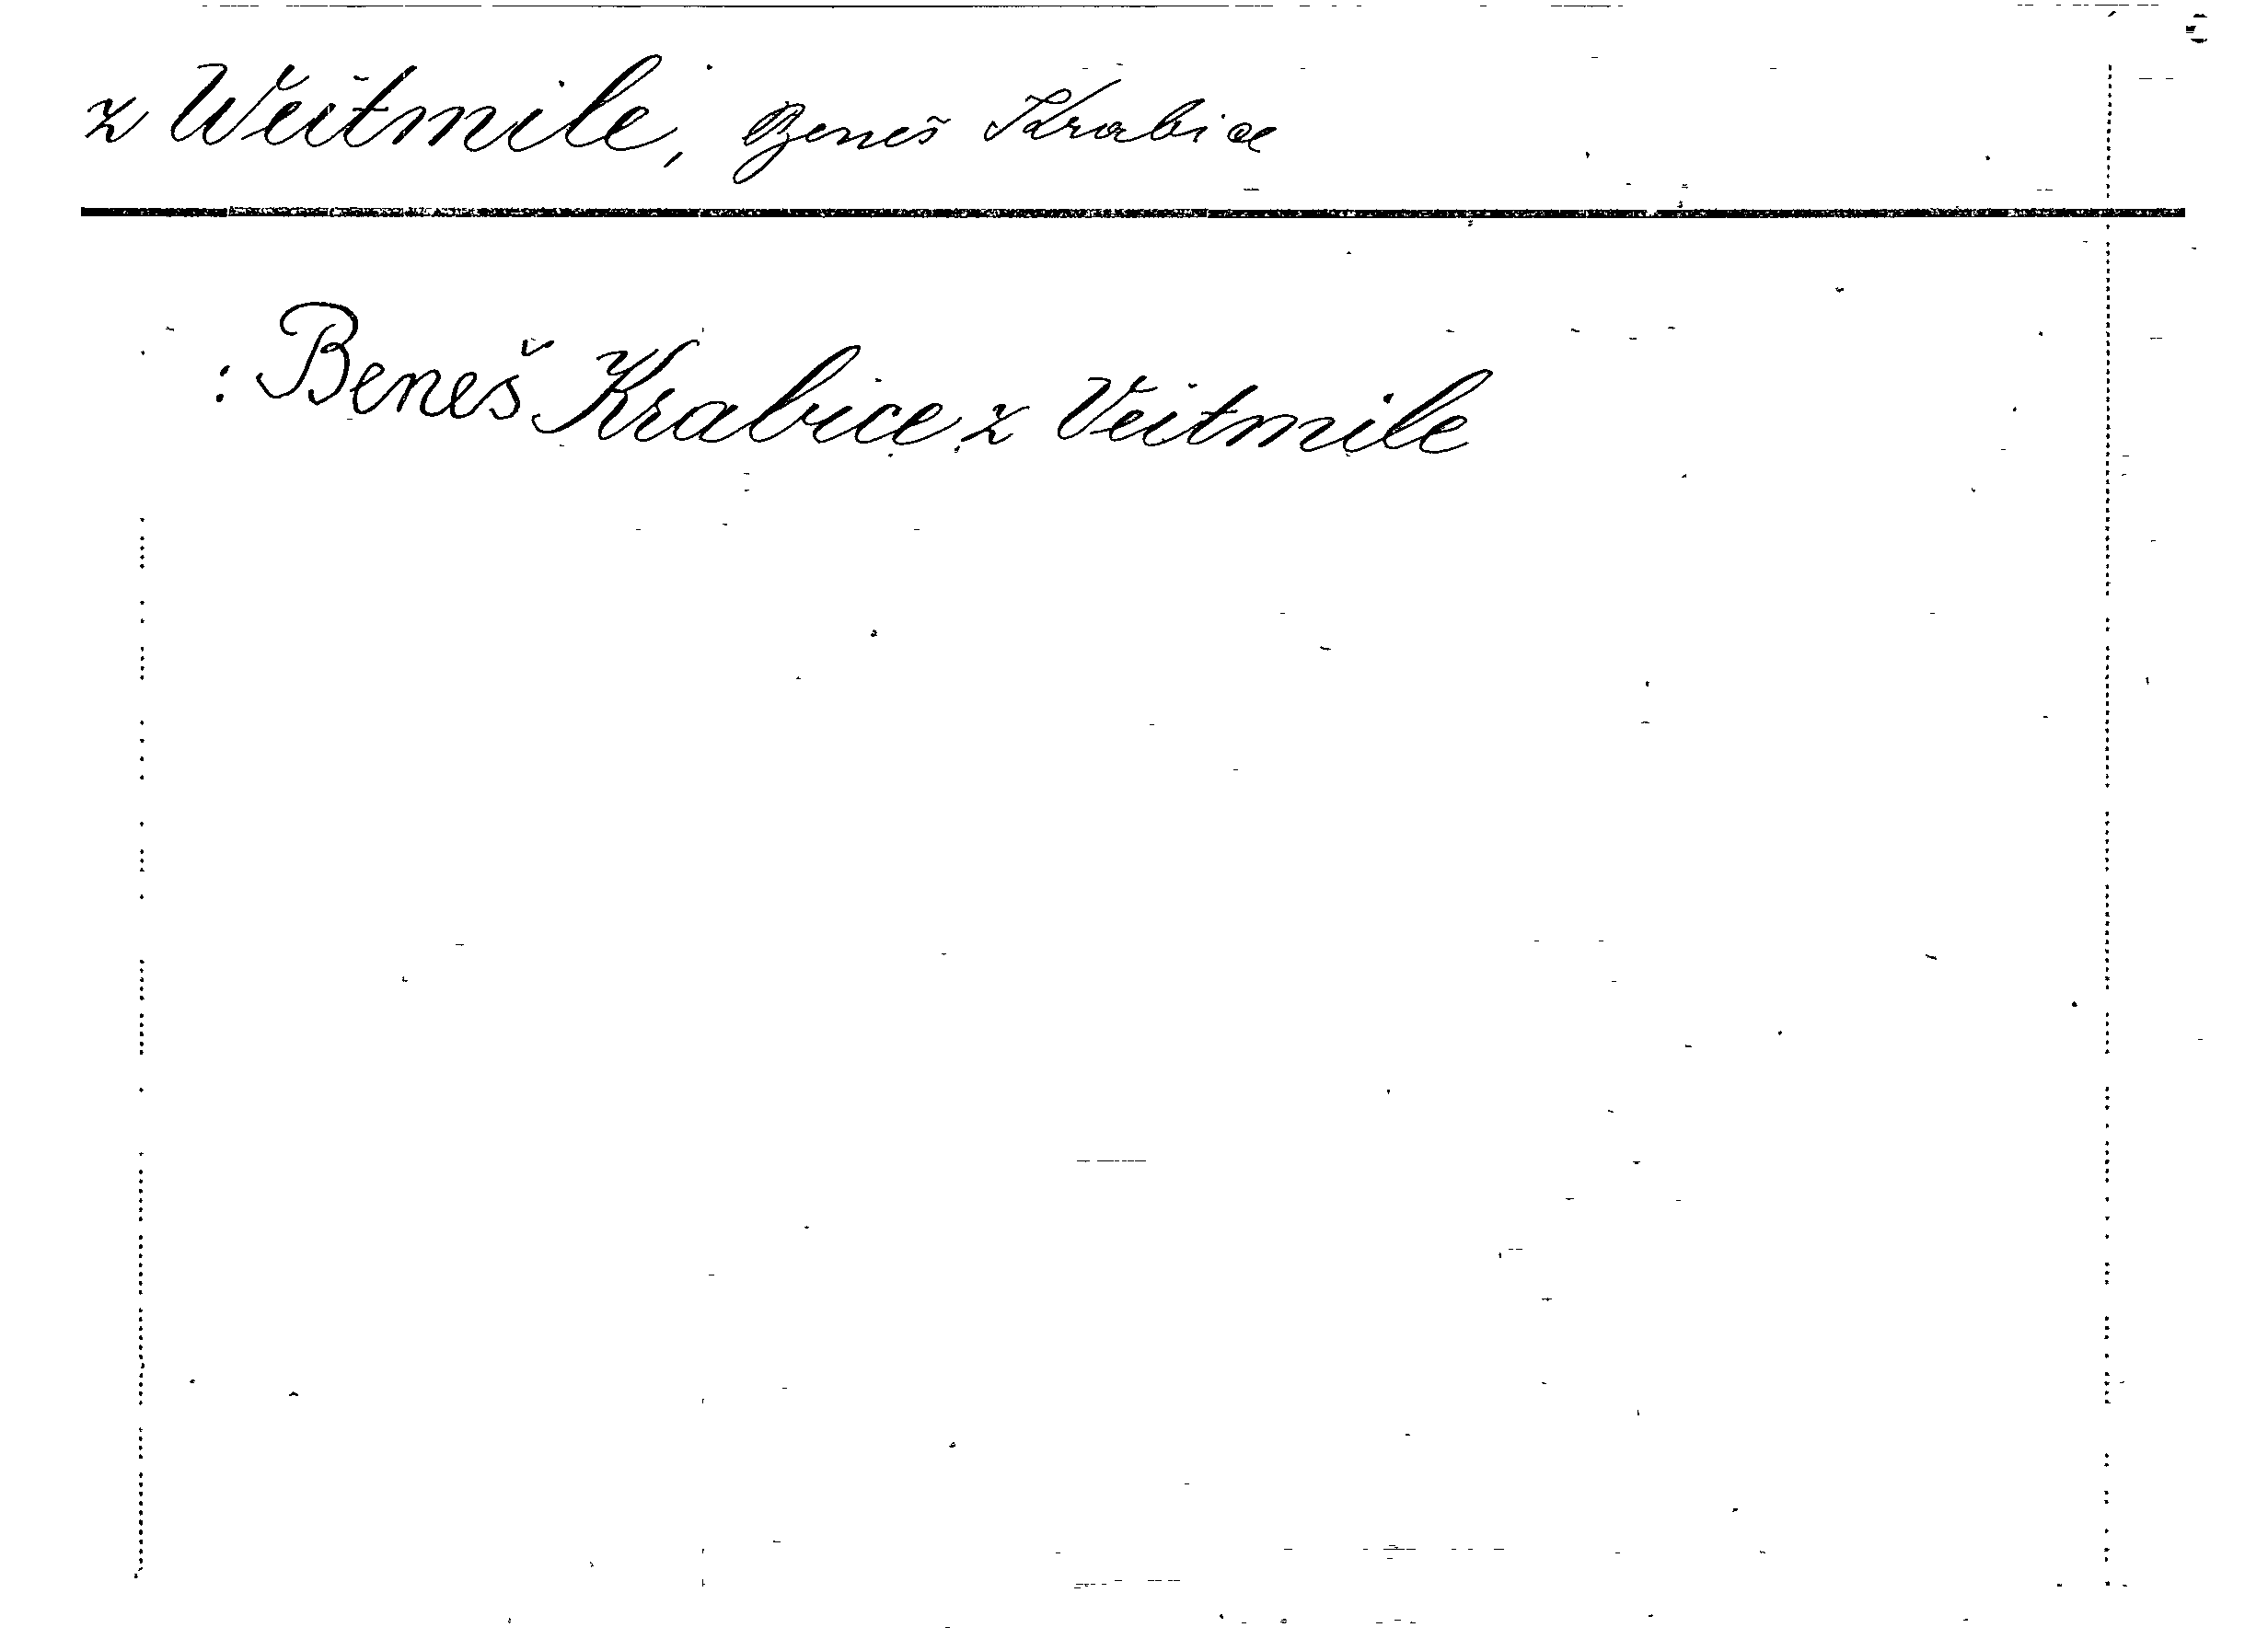 z Weitmile, Beneš Krabice
: Beneš Krabice z Veitmile